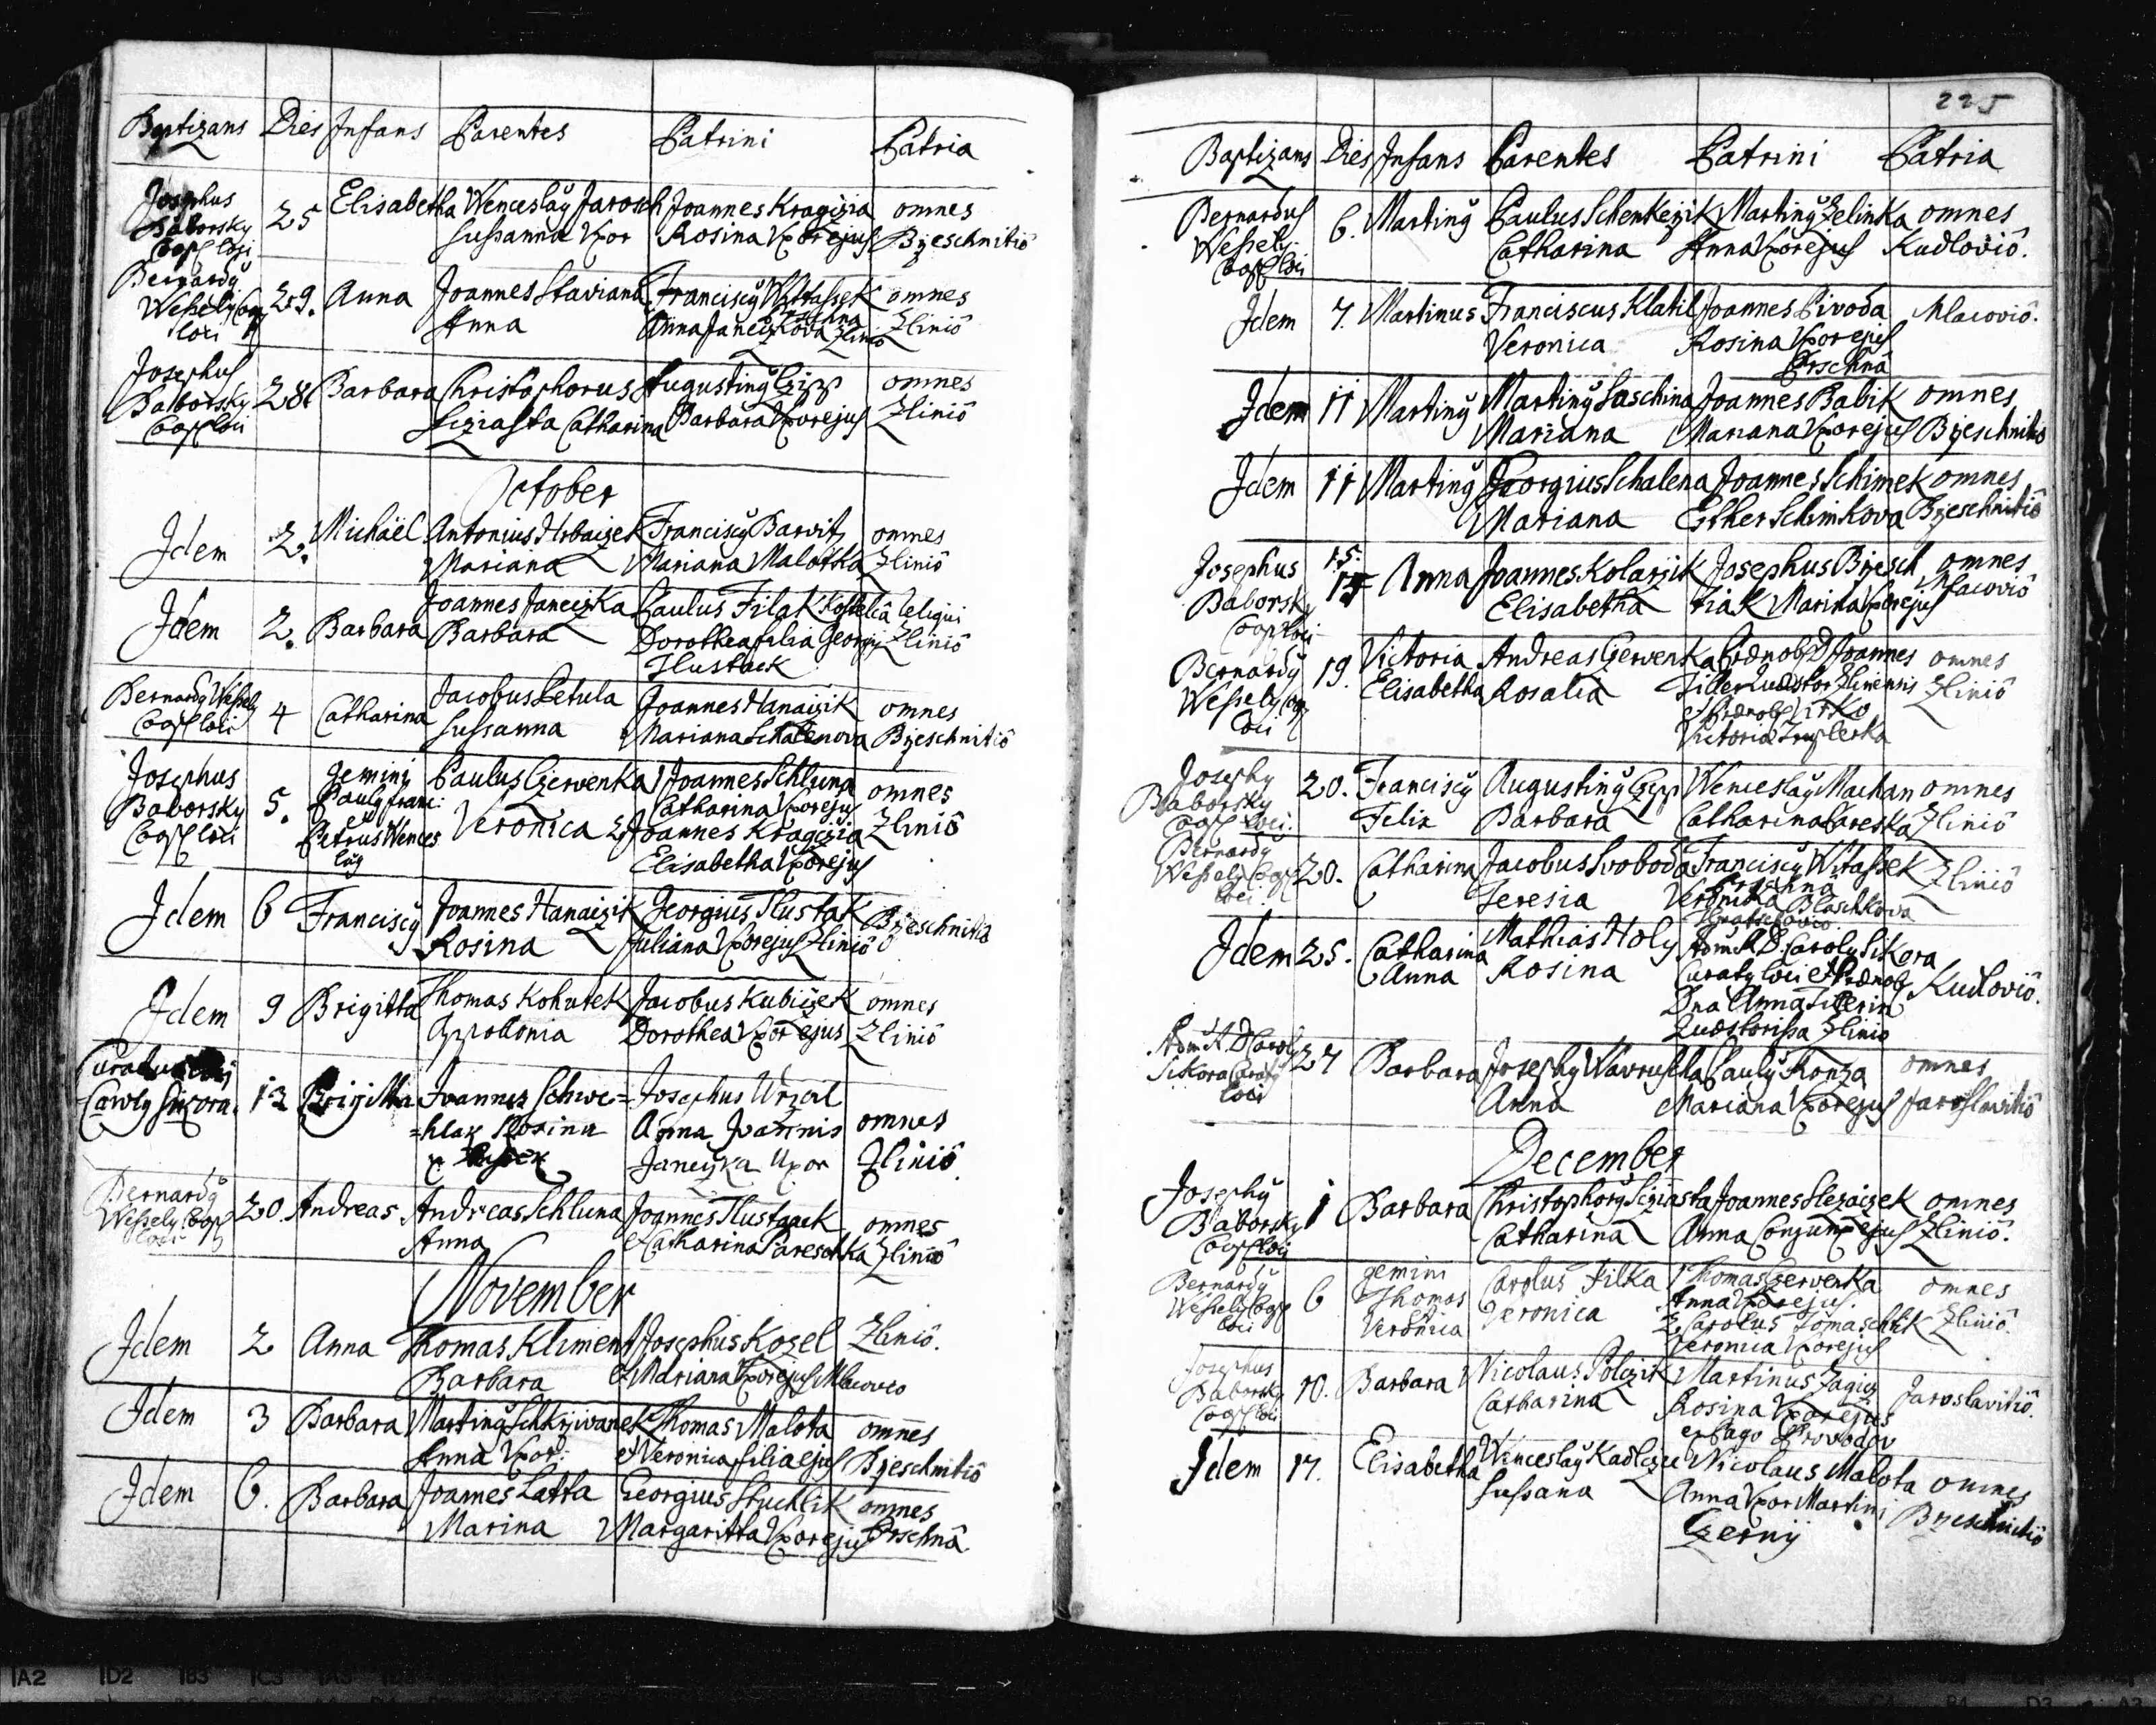 Baptizans Dies Infans Parentes Patrini Patria
Josephus Baborsky Coop loci 25 Elisabetha Wenceslaÿ Jarosch Sussanna Uxor Joannes Kragczia Rosina Uxor ejus omnes Brzeschnitiô
Bernardÿ Wessely Coop loci 29. Anna Joannes Staviana Anna Franciscÿ Anna Janeczkova Zlinô omnes Zliniô
Josephus Baborsky Coop loci 28 Barbara Christophorus Catharina Augustinÿ Barbara Uxor ejus omnes Zliniô
October
Idem 2. Michäel Antonius Hrbaczek Mariana Franciscÿ Barvitz Mariana Malotka omnes Zliniô
Idem 2. Barbara Joannes Janeczka Barbara Paulus Filak Dorothea filia Georgij Hustack Zliniô
Bernardÿ Wessely Coop loci 4 Catharina Jacobus Petula Sussanna Joannes Hanaczik Mariana Schalenova omnes Brzeschnitiô
Josephus Baborsky Coop loci 5. Gemini Paulÿ Franc: et Petrus Wenceslaÿ Paulus Czervenka Veronica 1 Joannes Schluna Catharina Uxor ejus 2 Joannes Kragczia Elisabetha Uxor ejus omnes Zliniô
Idem 6 Franciscÿ Joannes Hanaczik Rosina Georgius Tlustak Juliana Uxor ejus Zliniô Brzeschnitiô
Idem 9 Brigitta Thomas Kohutek Appollonia Jacobus Kubiczek Dorothea Uxor ejus omnes Zliniô
Carolÿ Sikora 13 Brigitta Joannes Schwe= =hlak Rosina Josephus Anna Joannis Janeczka Uxor omnes Zliniô
Bernardÿ Wessely Coop loci 20. Andreas Andreas Schluna Anna Joannes Tlustaack et Catharina Pareschka omnes Zliniô
November
Idem 2 Anna Thomas Kliment Barbara Josephus Kozel et Mariana Uxor ejus Mlacovio Zliniô.
Idem 3 Barbara Martinÿ Schkrzivanek Anna Uxor: Thomas Malota et Veronica filia ejus omnes Brzeschnitiô
Idem 6. Barbara Joannes Latta Marina Georgius Stuchlik Margaritta Uxor ejus omnes Prschnâ
225
Baptizans Dies Infans Parentes Patrini Patria
Bernardus Wessely Coop loci 6. Martinÿ Paulus Schenkerzik Catharina Martinÿ Zelinka Anna Uxor ejus omnes Kudloviô.
Idem 7. Martinus Franciscus Klatil Veronica Joannes Pivoda Rosina Uxor ejus Prschnâ Mlacoviô.
Idem 11 Martinÿ Martinÿ Saschina Mariana Joannes Babik Mariana Uxor ejus omnes Brzeschnitiô
Idem 11 Martinÿ Georgius Schalena Mariana Joannes Schimek Esther Schimkova omnes Brzeschnitiô
Josephus Baborsky Coop loci 15. Anna Joannes Kolarzik Elisabetha Josephus Brzesch tiak Marina Uxor ejus omnes Mlacoviô
Bernardÿ Wessely Coop loci 19. Victoria Elisabetha Andreas Czervenka Rosalia Prænob D Joannes Quæstor Zlinensis et Prænob Virgo Victoria omnes Zliniô
Josephÿ Baborsky Coop loci. 20. Franciscÿ Felix Augustinÿ Barbara Wenceslaÿ Machan Catharina Pareska omnes Zliniô
Bernardÿ Wessely Coop loci. 20. Catharina Jacobus Svoboda Teresia Franciscÿ Witassek Prschna Veronika Blaschkova Zliniô
Idem 25. Catharina Anna Mathias Holy Rosina Adm R. D. Carolÿ Sikora Curatÿ loci et Prænob Dna Anna Quæstorissa Zlinio Kudloviô.
Adm R. D Carolÿ Sikora Curatÿ loci 27 Barbara Josephÿ Wavruscha Anna Paulÿ Konza Mariana Uxor ejus omnes Jaroslavitiô
December
Josephÿ Baborsky Coop loci 1 Barbara Christophorÿ Catharina Joannes Slezaczek Anna Conjunx ejus omnes Zliniô.
Bernardÿ Wessely Coop loci 6 gemini Thomas Veronica Carolus Filka Veronica 1 Thomas Czervenka Anna Uxor ejus. 2. Carolus Tomaschtik Veronica Uxor ejus omnes Zliniô.
Josephus Baborsky Coop loci 10. Barbara Nicolaus Polczik Catharina Martinus Zagicz Rosina Uxor ejus ex Pago Provodov Jaroslavitiô.
Idem 17. Elisabetha Wenceslaÿ Kadlczu Sussana Nicolaus Malota Anna Uxor Martini Czernÿ omnes Brzeschnitiô